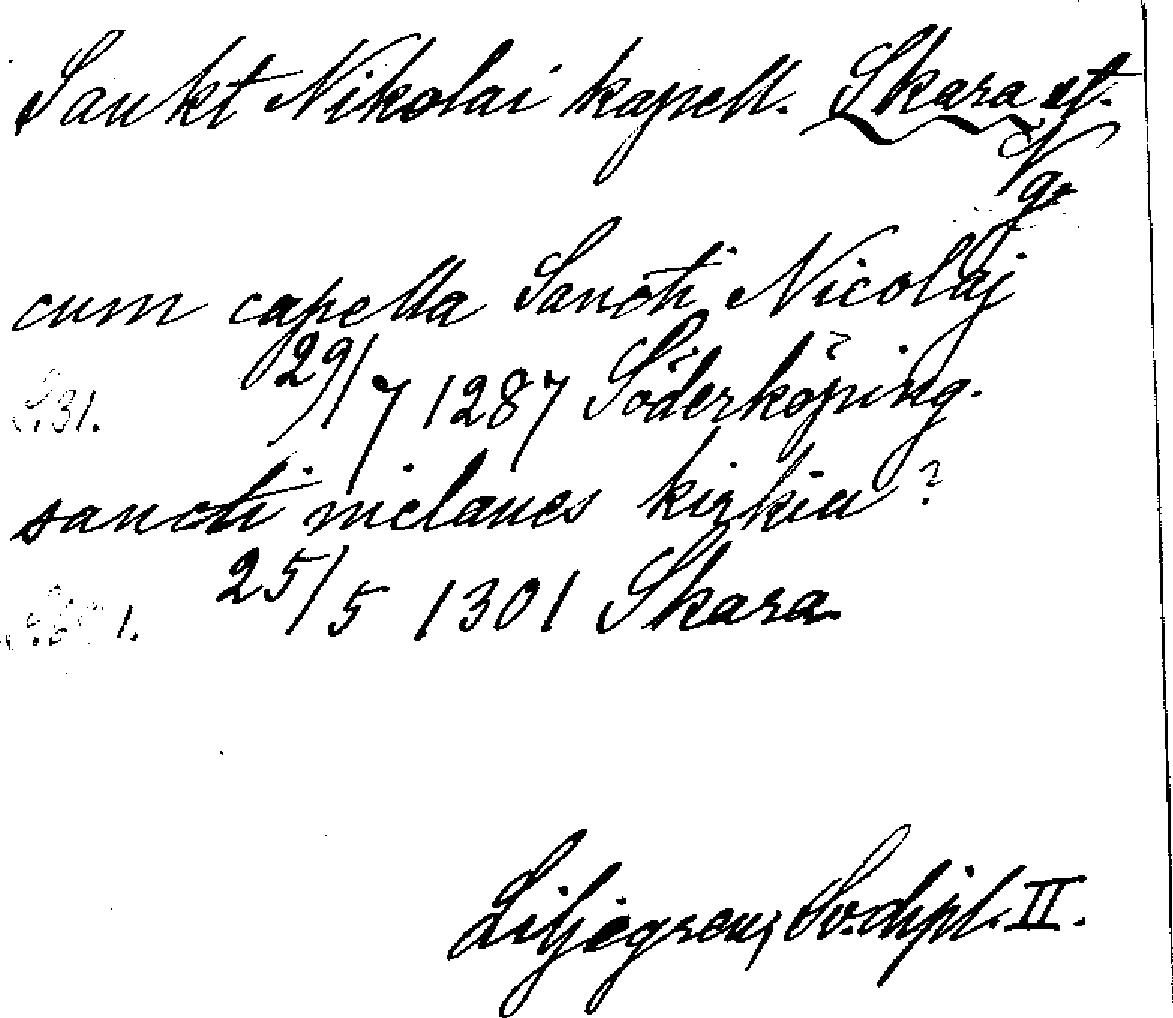 Sankt Nikolai kapell. Skara st.
Vg.
cum capella Sancti Nicolaj
S. 31. 29/7 1287 Söderköping.
sancti niclaues kirkiu?
25/5 1301 Skara.
Liljegren, Sv. dipl. II.